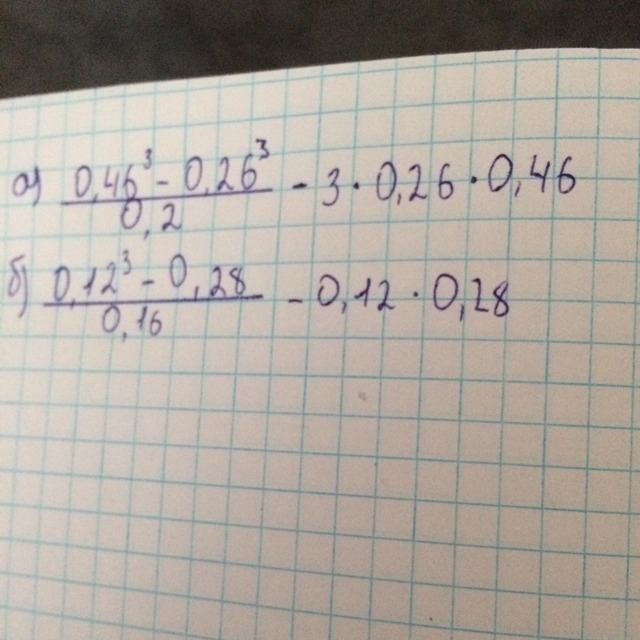 а) (0,46³ - 0,26³)/0,2 - 3 · 0,26 · 0,46
б) (0,12³ - 0,28)/0,16 - 0,12 · 0,28